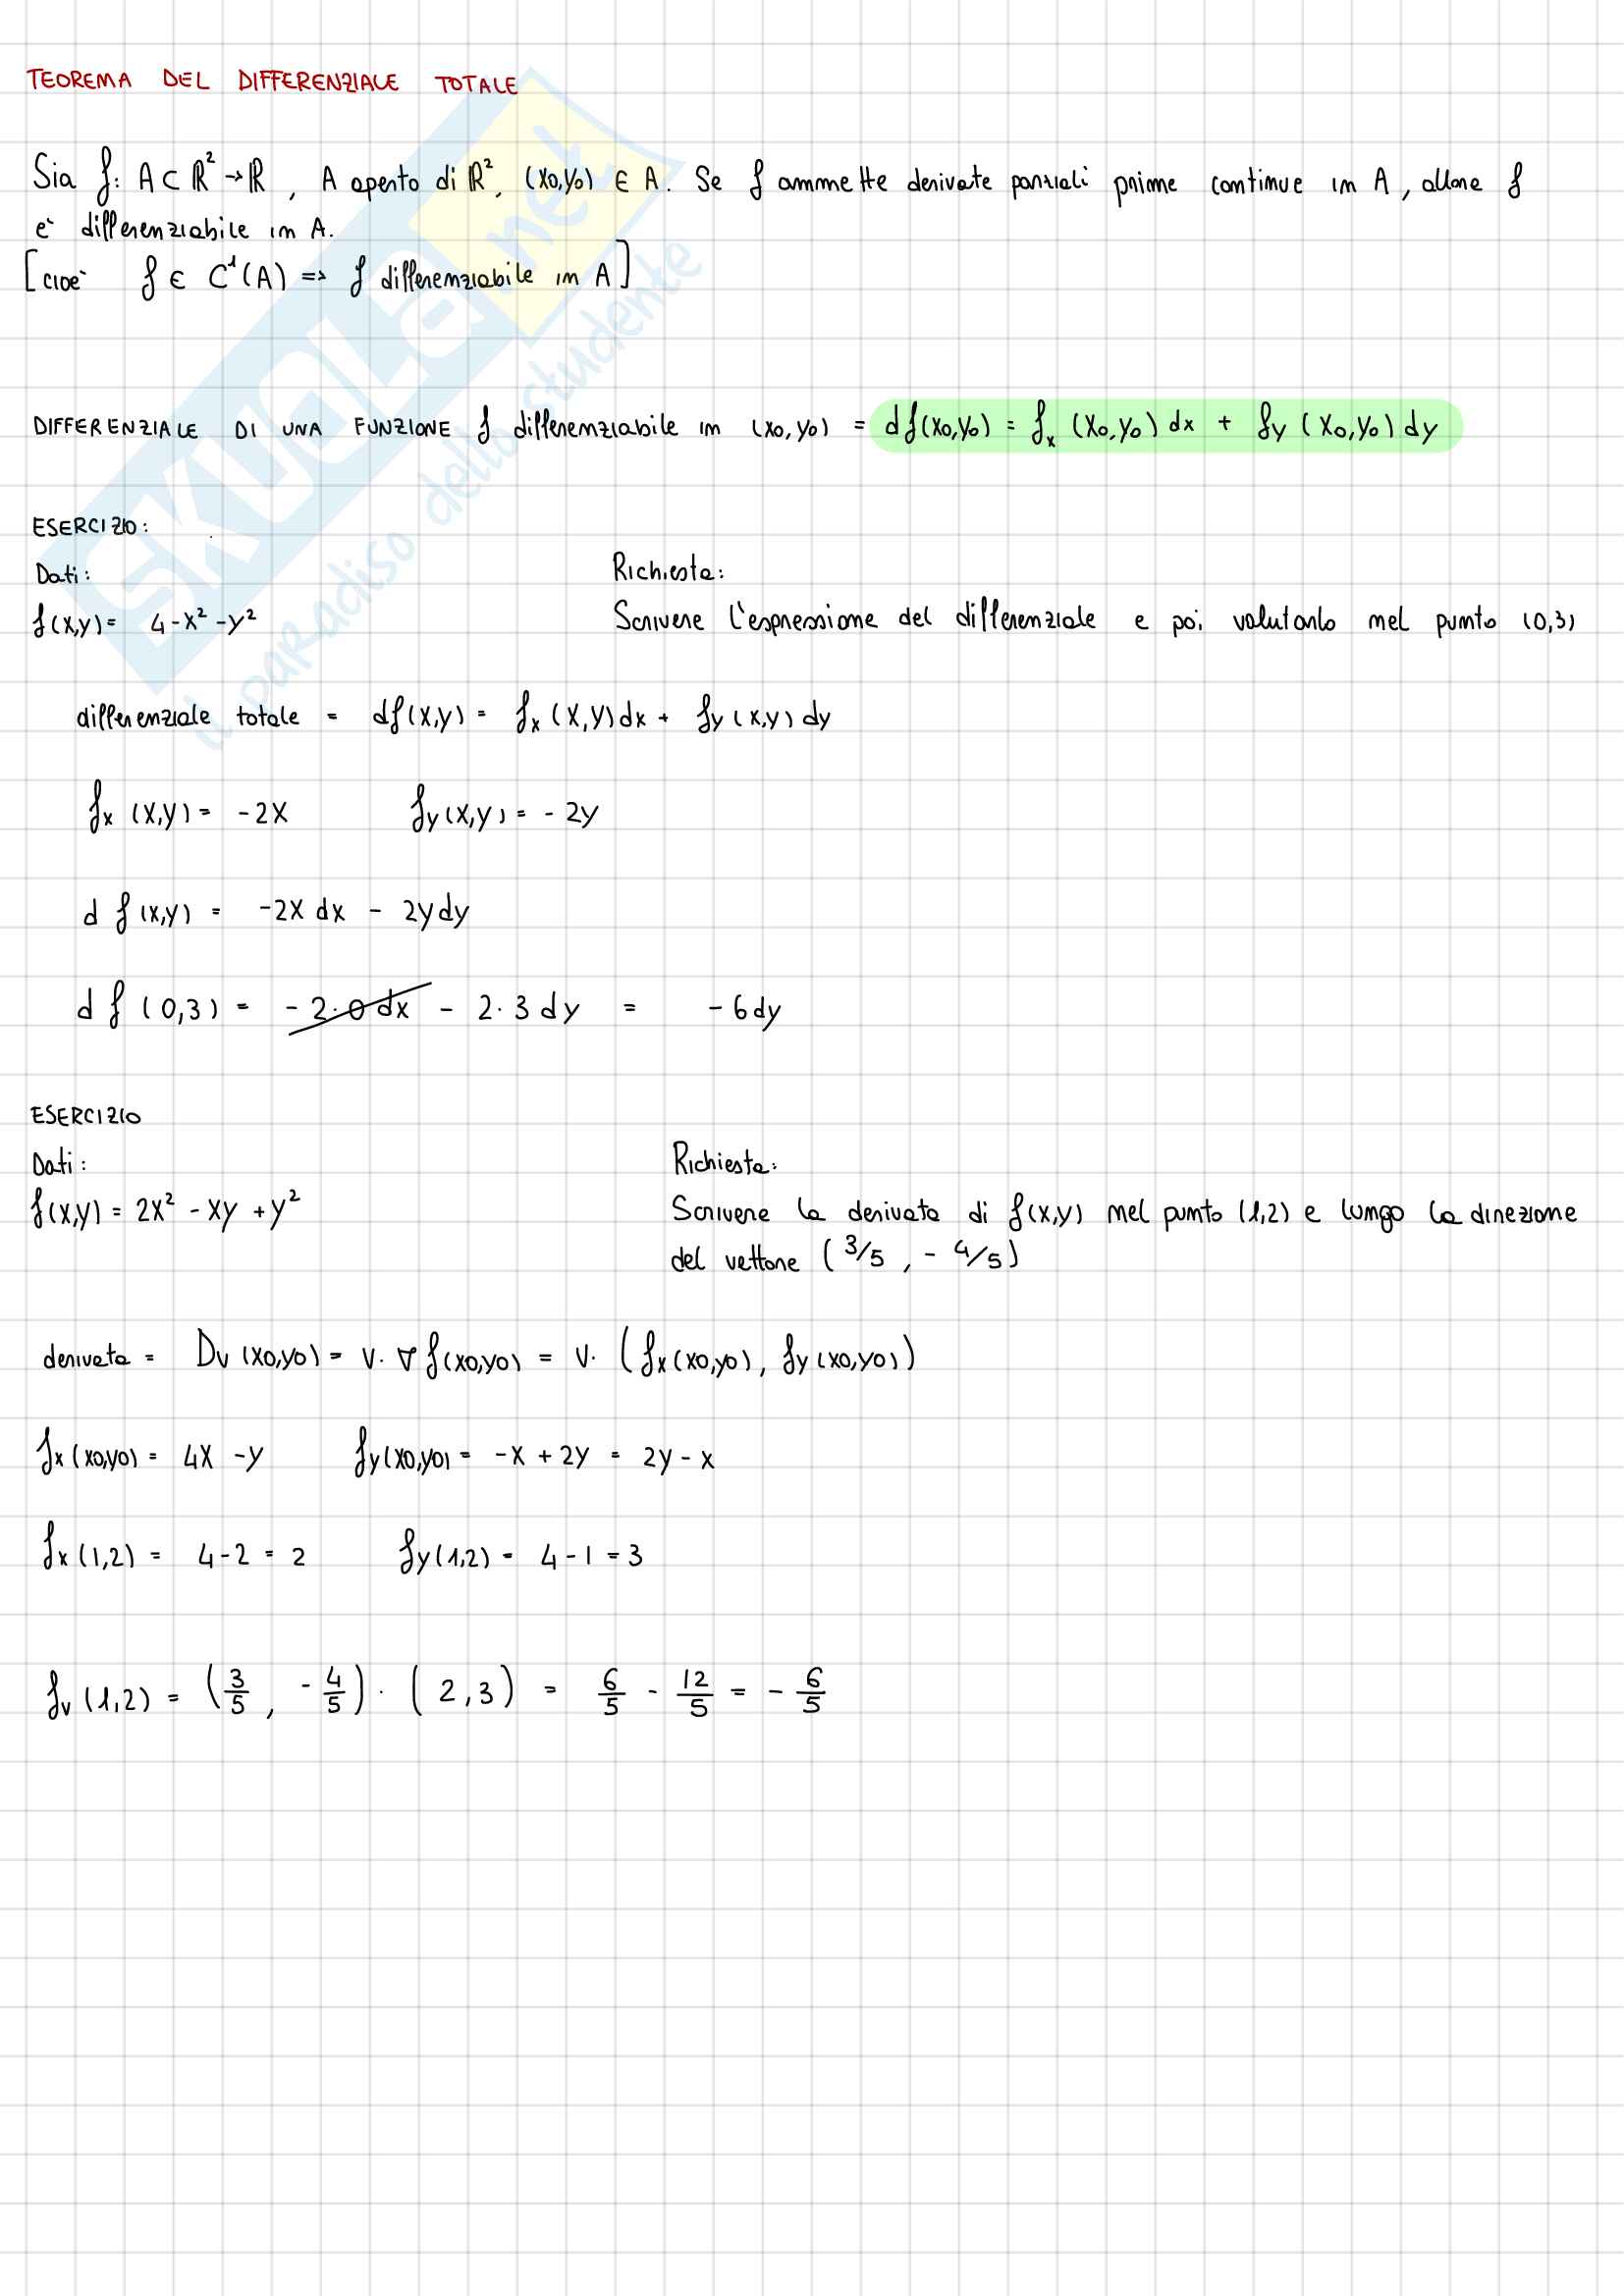 TEOREMA DEL DIFFERENZIALE TOTALE
Sia f: A ⊂ ℝ² → ℝ , A aperto di ℝ², (x₀,y₀) ∈ A. Se f ammette derivate parziali prime continue in A, allora f
è differenziabile in A.
[cioè f ∈ C¹(A) => f differenziabile in A]
DIFFERENZIALE DI UNA FUNZIONE f differenziabile in (x₀,y₀) = df(x₀,y₀) = fx (x₀,y₀) dx + fy (x₀,y₀) dy
ESERCIZIO:
Dati: Richiesta:
f(x,y) = 4-x²-y² Scrivere l'espressione del differenziale e poi valutarlo nel punto (0,3)
differenziale totale = df(x,y) = fx (x,y) dx + fy (x,y) dy
fx (x,y) = -2x fy(x,y) = -2y
d f(x,y) = -2x dx - 2y dy
d f (0,3) = -2·0 dx - 2·3 dy = -6dy
ESERCIZIO
Dati: Richiesta:
f(x,y) = 2x² - xy + y² Scrivere la derivata di f(x,y) nel punto (1,2) e lungo la direzione
del vettore (3/5 , - 4/5)
derivata = Dv (x0,y0) = v · ∇ f(x0,y0) = v · (fx(x0,y0), fy(x0,y0))
fx(x0,y0) = 4x - y fy(x0,y0) = -x + 2y = 2y - x
fx(1,2) = 4-2 = 2 fy(1,2) = 4-1 = 3
fv (1,2) = (3/5 , -4/5) · (2,3) = 6/5 - 12/5 = - 6/5
SKUOLA.net
il paradiso dello studente